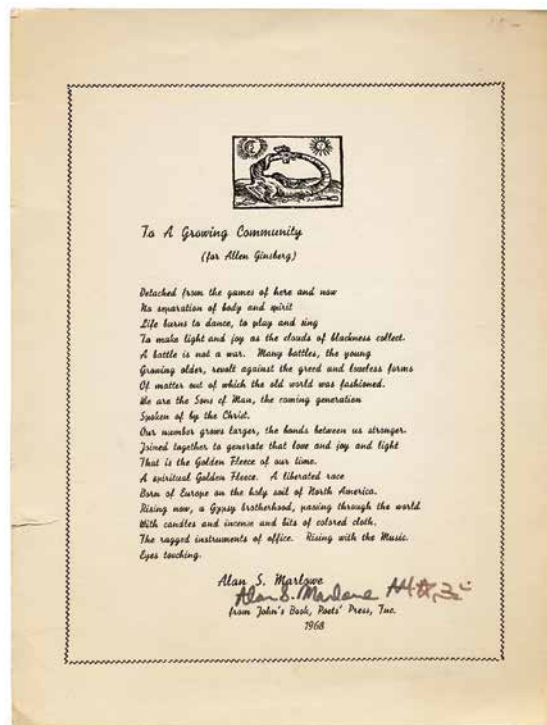 To A Growing Community
(for Allen Ginsberg)
Detached from the games of here and now
No separation of body and spirit
Life burns to dance, to play and sing
To make light and joy as the clouds of blackness collect.
A battle is not a war. Many battles, the young
Growing older, revolt against the greed and loveless forms
Of matter out of which the old world was fashioned.
We are the Sons of Man, the coming generation
Spoken of by the Christ.
Our number grows larger, the bonds between us stronger.
Joined together to generate that love and joy and light
That is the Golden Fleece of our time.
A spiritual Golden Fleece. A liberated race
Born of Europe on the holy soil of North America.
Rising now, a Gypsy brotherhood, passing through the world
With candles and incense and bits of colored cloth.
The ragged instruments of office. Rising with the Music.
Eyes touching.
Alan S. Marlowe
Alan S. Marlowe
from John's Book, Poets' Press, Inc.
1968